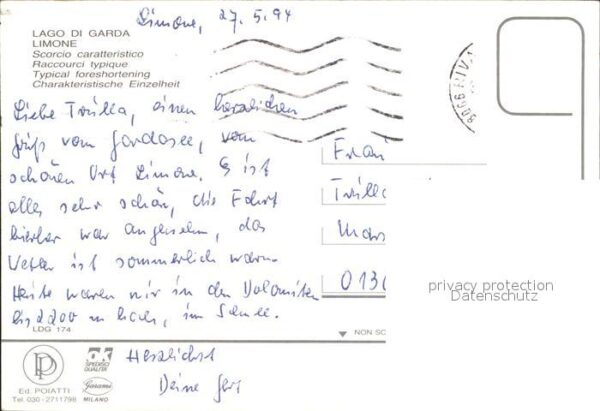 Limone, 27.5.94
LAGO DI GARDA
LIMONE
Scorcio caratteristico
Raccourci typique
Typical foreshortening
Charakteristische Einzelheit
Liebe Trulla, einen herzlichen
Gruß vom Gardasee, vom
schönen Ort Limone. Es ist
alles sehr schön, die Fahrt
hierher war angenehm, das
Wetter ist sommerlich warm.
Heute waren wir in den Dolomiten
bis 2200 m hoch, im Schnee.
Herzlichst
Deine
Frau
Trulla
Mars
013
privacy protection
Datenschutz
LDG 174
NON SC
PD
Ed. POIATTI
Tel. 030 - 2711798
OK
SPEDISCI
QUALITÀ
Garami
MILANO